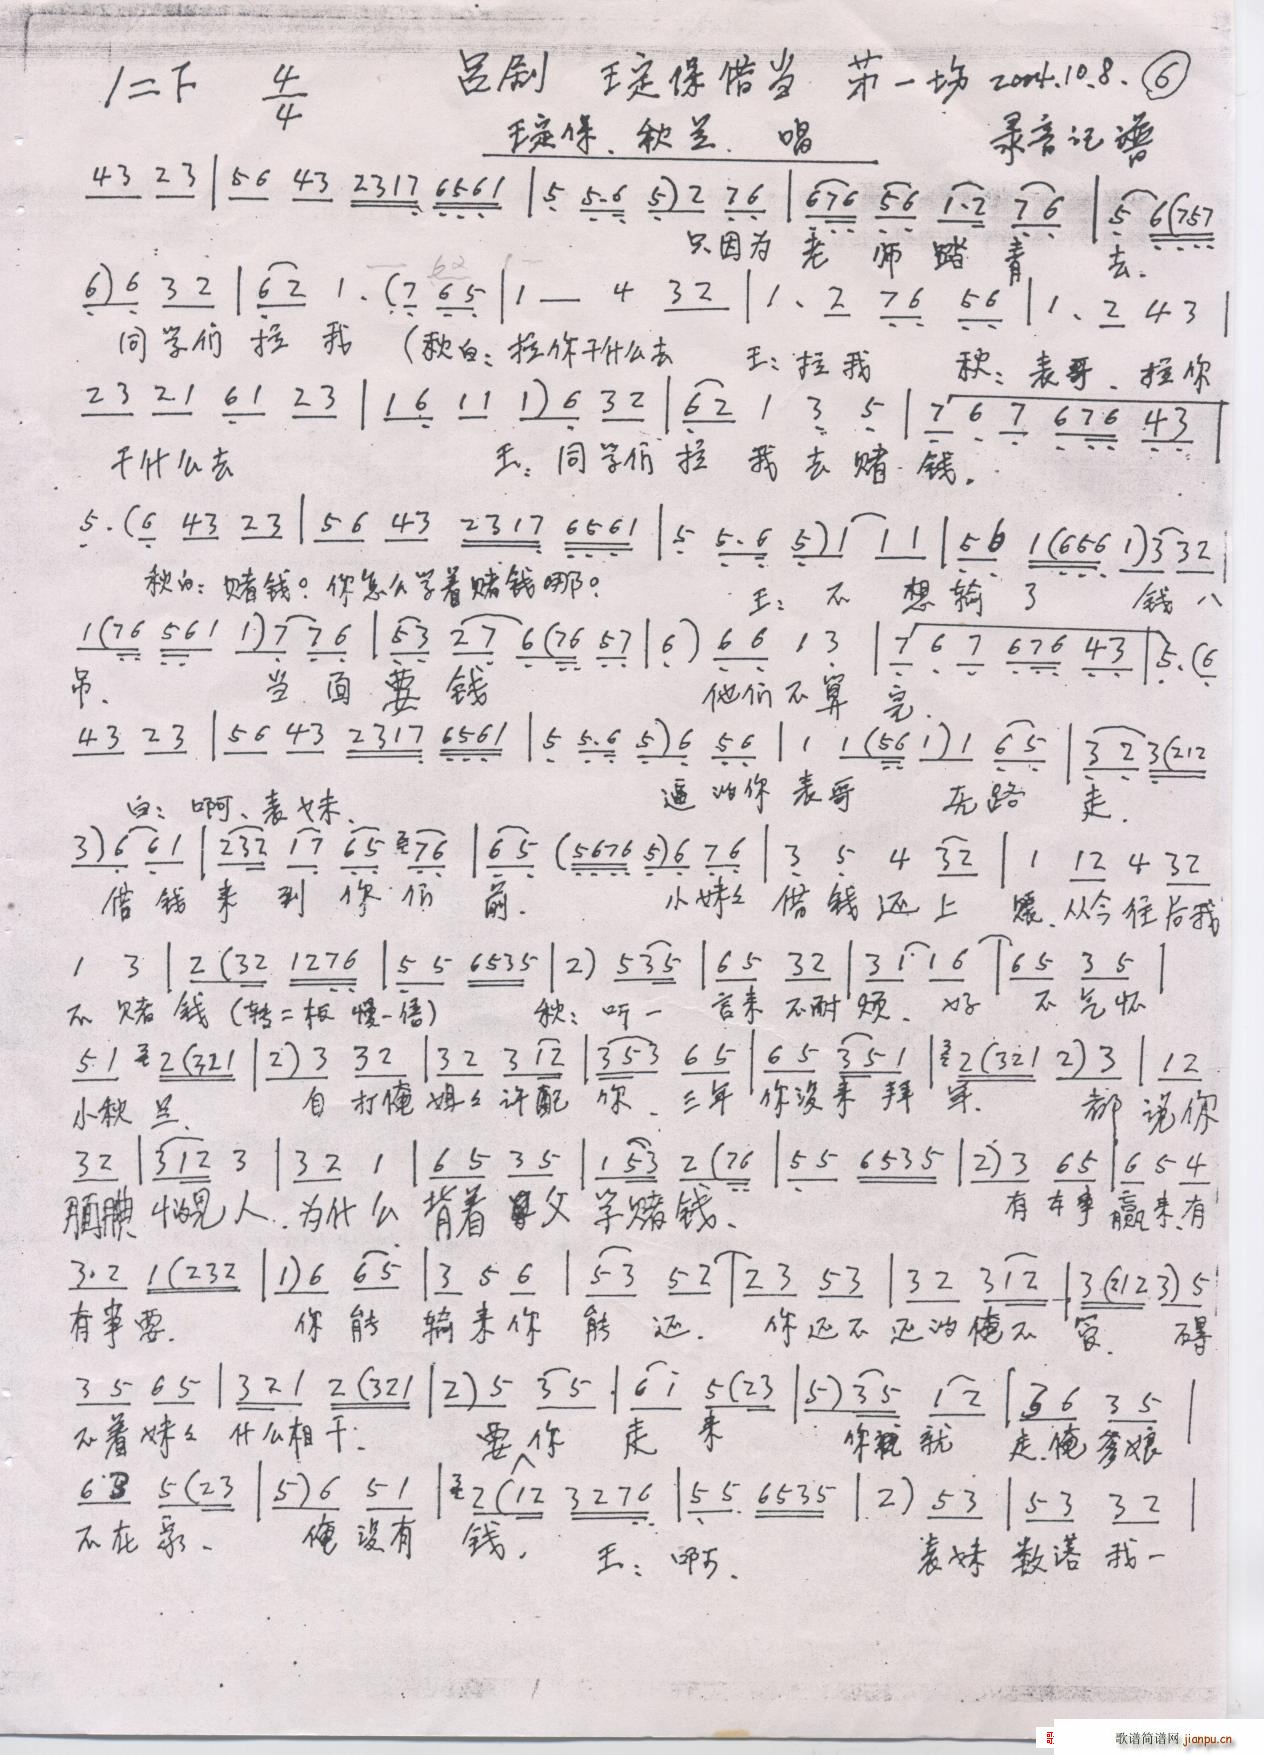 1=F 4/4 吕剧 王定保借当 第一场 2004.10.8. ⑥
王定保、秋兰 唱 录音记谱
43 23 | 56 43 2317 6561 | 5 5.6 5) 2 76 | 676 56 1.2 76 | 5 6(757
只因为 老师踏青 去.
6) 6 32 | 62 1. (7 65 | 1 — 4 32 | 1. 2 76 56 | 1. 2 43 |
同学们 拉 我 (秋白: 拉你干什么去 王: 拉我 秋: 表哥、拉你
23 21 61 23 | 16 11 1) 6 32 | 62 1 3 5 | 7 6 7 676 43 |
干什么去 王: 同学们 拉 我 去 赌 钱.
5. (6 43 23 | 56 43 2317 6561 | 5 5.6 5) 1 11 | 56 1(656 1) 3 32 |
秋白: 赌钱? 你怎么学着赌钱哪? 王: 不 想输 了 钱八
1(76 561 1) 7 76 | 53 27 6(76 57 | 6) 66 1 3 | 7 6 7 676 43 | 5. (6
吊. 当面要钱 他们不算 完.
43 23 | 56 43 2317 6561 | 5 5.6 5) 6 56 | 1 1(56 1) 1 65 | 32 3(212
白: 啊、表妹. 逼的你 表哥 无路 走.
3) 6 61 | 232 17 65 76 | 65 (5676 5) 6 76 | 3 5 4 32 | 1 12 4 32
借 钱 来 到 你 们 前. 小妹妹 借钱还上 赎. 从今往后我
1 3 | 2 (32 1276 | 55 6535 | 2) 535 | 65 32 | 31 16 | 65 35 |
不 赌 钱 (转二板 慢一倍) 秋: 听一 言来 不耐 烦. 好 不气怀
51 2(321 | 2) 3 32 | 32 312 | 353 65 | 65 351 | 2(321 2) 3 | 12
小秋兰. 自 打俺 姐姐 许配 你. 三年 你没来 拜 年. 都 说你
32 | 312 3 | 32 1 | 65 35 | 153 2(76 | 55 6535 | 2) 3 65 | 654
腼腆 怕见人. 为什么 背着 父 学赌钱. 有 本事 赢来. 有
3.2 1(232 | 1) 6 65 | 3 5 6 | 53 52 | 23 53 | 32 312 | 3(212 3) 5
有事要. 你 能 输来你 能 还. 你还不还的俺不 管. 碍
35 65 | 321 2(321 | 2) 5 35 | 61 5(23 | 5) 35 12 | 36 35 |
不着妹妹 什么相干. 要你 走 来 你就 走. 俺爹娘
63 5(23 | 5) 6 51 | 2(12 3276 | 55 6535 | 2) 53 | 53 32 |
不在家. 俺 没有 钱. 王: 啊. 表妹 数落 我一
歌谱简谱网 jianpu.cn